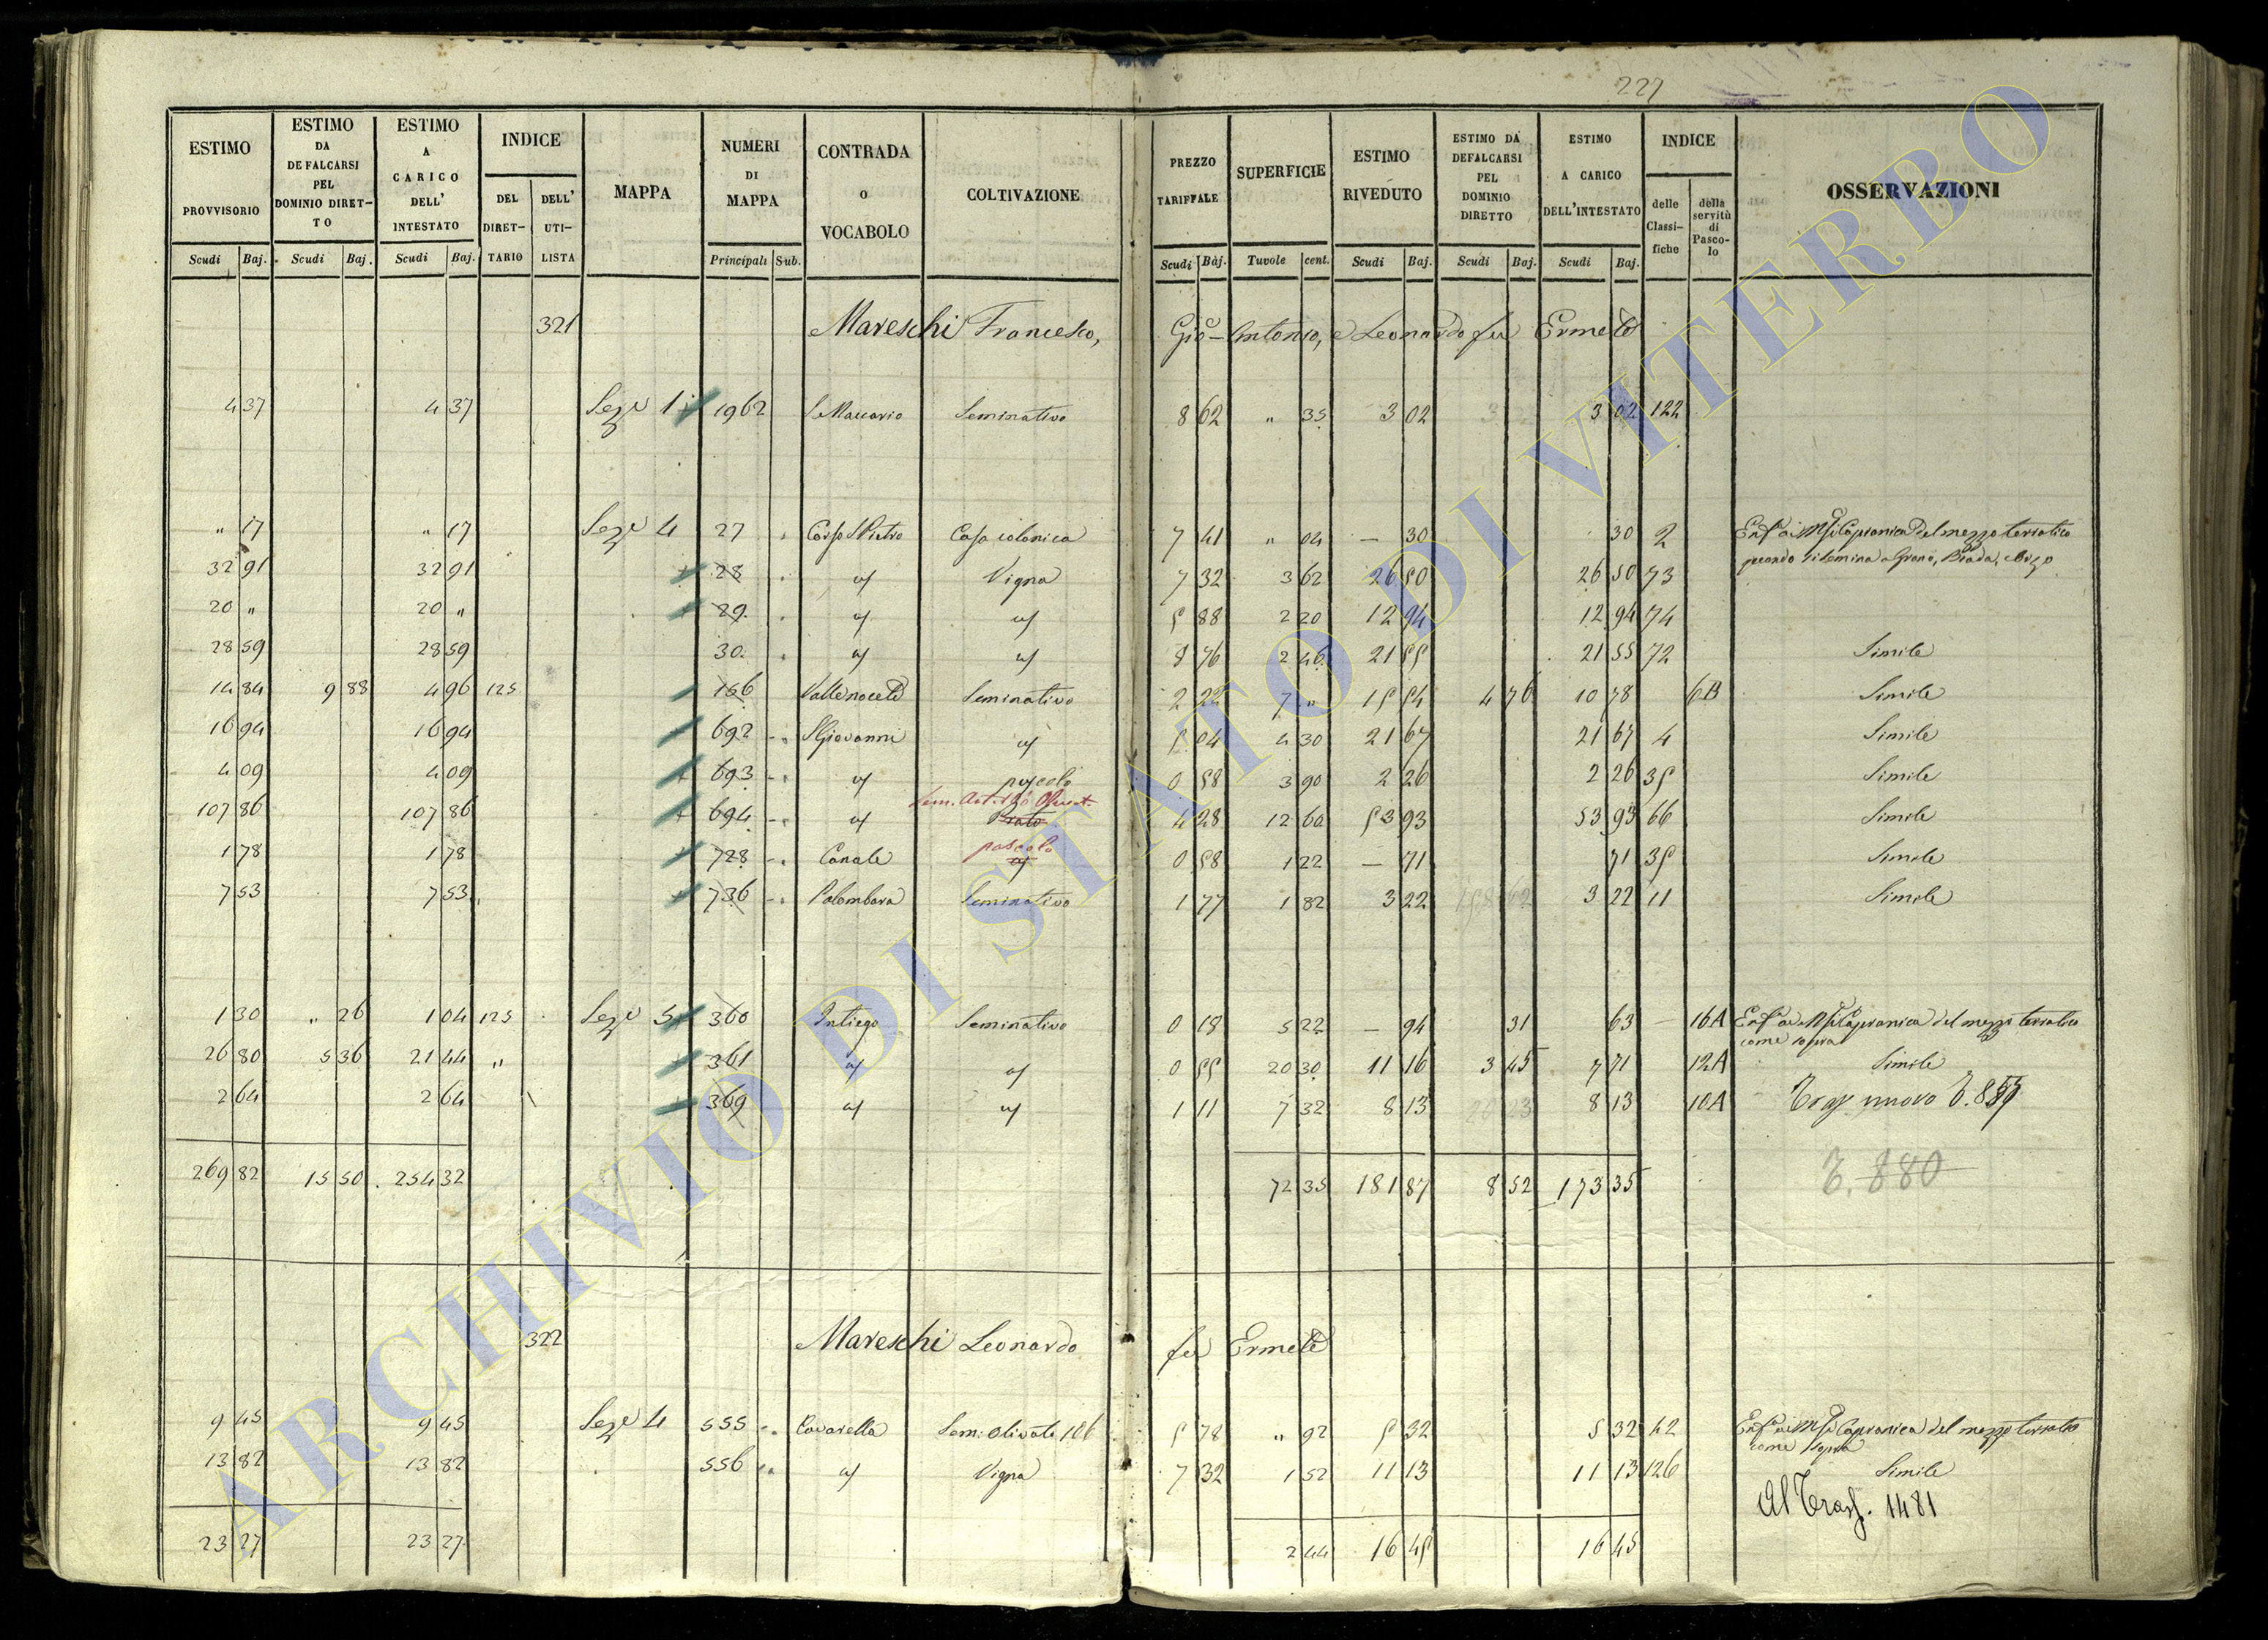 227
ESTIMO PROVVISORIO Scudi Baj.
ESTIMO DA DEFALCARSI PEL DOMINIO DIRETTO Scudi Baj.
ESTIMO A CARICO DELL' INTESTATO Scudi Baj.
INDICE DEL DIRETTARIO DELL' UTILISTA
MAPPA
NUMERI DI MAPPA Principali Sub.
CONTRADA o VOCABOLO
COLTIVAZIONE
PREZZO TARIFFALE Scudi Baj.
SUPERFICIE Tavole cent.
ESTIMO RIVEDUTO Scudi Baj.
ESTIMO DA DEFALCARSI PEL DOMINIO DIRETTO Scudi Baj.
ESTIMO A CARICO DELL'INTESTATO Scudi Baj.
INDICE delle Classifiche della servitù di Pascolo
OSSERVAZIONI
321 Mareschi Francesco, Gio Antonio, e Leonardo fu Ermete
4 37 4 37 Seze 1 1962 S. Maccario Seminativo 8 62 " 35 3 02 3 02 122
" 17 " 17 Seze 4 27 Corso S Pietro Casa colonica 7 41 " 04 — 30 30 2 Capranica del mezzo terratico
quando si semina a Grano, Biada, e Orzo
32 91 32 91 28 Vigna 7 32 3 62 26 50 26 50 73
20 " 20 " 29 5 88 2 20 12 94 12 94 74
28 59 28 59 30 8 76 2 46 21 55 21 55 72 Simile
14 84 9 88 4 96 125 156 Vallenocete Seminativo 2 22 7 " 15 54 4 76 10 78 6B Simile
16 94 16 94 692 S Giovanni 5 04 4 30 21 67 21 67 4 Simile
4 09 4 09 693 pascolo 0 58 3 90 2 26 2 26 35 Simile
107 86 107 86 694 Prato 4 28 12 60 53 93 53 93 66 Simile
1 78 1 78 728 Canale pascolo 0 58 1 22 — 71 71 35 Simile
7 53 7 53 736 Palombara Seminativo 1 77 1 82 3 22 3 22 11 Simile
1 30 " 26 1 04 125 Seze 5 360 Intiego Seminativo 0 18 5 22 — 94 31 63 — 16A Capranica del mezzo terratico
come sopra
26 80 5 36 21 44 " 361 0 55 20 30 11 16 3 45 7 71 12A Simile
2 64 2 64 369 1 11 7 32 8 13 8 13 10A nuovo
269 82 15 50 254 32 72 35 181 87 8 52 173 35 T. 880
322 Mareschi Leonardo fu Ermete
9 45 9 45 Seze 4 555 Cavarella Sem: Olivato 106 5 78 " 92 5 32 5 32 42 Capranica del mezzo terratico
come sopra
13 82 13 82 556 Vigna 7 32 1 52 11 13 11 13 126 Simile
Al Trasf. 1481
23 27 23 27 2 44 16 45 16 45
ARCHIVIO DI STATO DI VITERBO